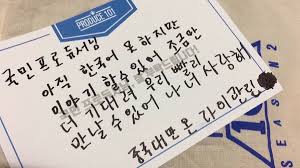 PRODUCE 101
국민 프로듀서님
아직 한국어 못하지만
이야기 할수있어 조금만
더 기대려 우리 빨리
만날수있어 나 너 사랑해
중국대만 온 라이관린
SEASON 2